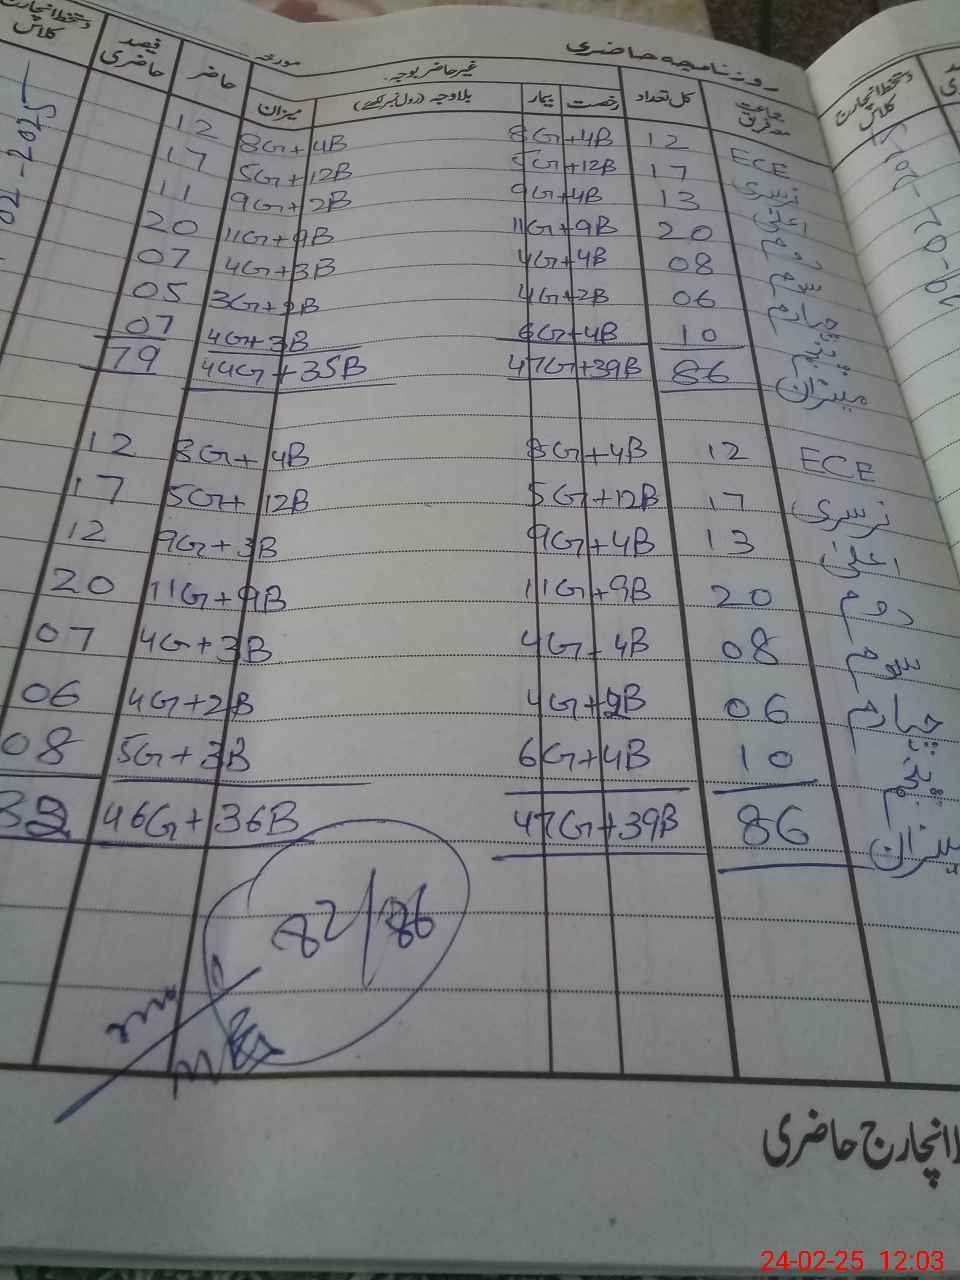 روزنامچہ حاضری
مورخہ
جماعت معہ فریق کل تعداد غیر حاضر بوجہ رخصت بیمار بلاوجہ (رول نمبر لکھیے) میزان حاضر فیصد حاضری دستخط انچارج کلاس
ECE 12 8G+4B 8G+4B 12
نرسری 17 5G+12B 5G+12B 17
اعلیٰ 13 9G+4B 9G+2B 11
دوم 20 11G+9B 11G+9B 20
سوم 08 4G+4B 4G+3B 07
چہارم 06 4G+2B 3G+2B 05
پنجم 10 6G+4B 4G+3B 07
میزان 86 47G+39B 44G+35B 79
ECE 12 8G+4B 8G+4B 12
نرسری 17 5G+12B 5G+12B 17
اعلیٰ 13 9G+4B 9G+3B 12
دوم 20 11G+9B 11G+9B 20
سوم 08 4G+4B 4G+3B 07
چہارم 06 4G+2B 4G+2B 06
پنجم 10 6G+4B 5G+3B 08
میزان 86 47G+39B 46G+36B
82/86
02-2025
دستخط انچارج کلاس
انچارج حاضری
24-02-25 12:03